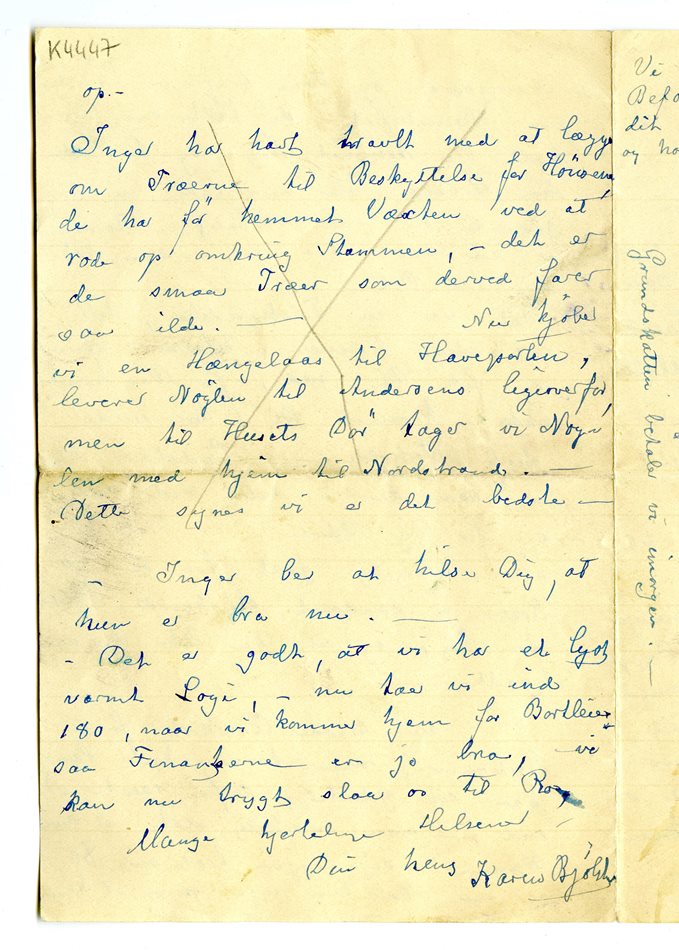 K4447
op.-
Inger har havt travlt med at lægge
om Træerne til Beskyttelse for Hönsene,
de har för hemmet Væxten ved at
rode op omkring Stammen, - det er
de smaa Træer som derved farer
saa ilde. — Nu kjöber
vi en Hængelaas til Haveporten,
leverer Nöglen til Andersens ligeoverfor,
men til Husets Dör tager vi Nög-
len med hjem til Nordstrand. —
Dette synes vi er det bedste —
- Inger ber at hilse Dig, at
hun er bra nu. —
- Det er godt, at vi har et lyst
varmt Logi, - nu tar vi ind
180, naar vi komme hjem for Bortleie,
saa Finanserne er jo bra, - vi
kan nu trygt slaa os til Ro,
Mange hjertelige Hilsener
Din hens Karen
Vi
dit
og
Grundskatten betaler vi imorgen. —